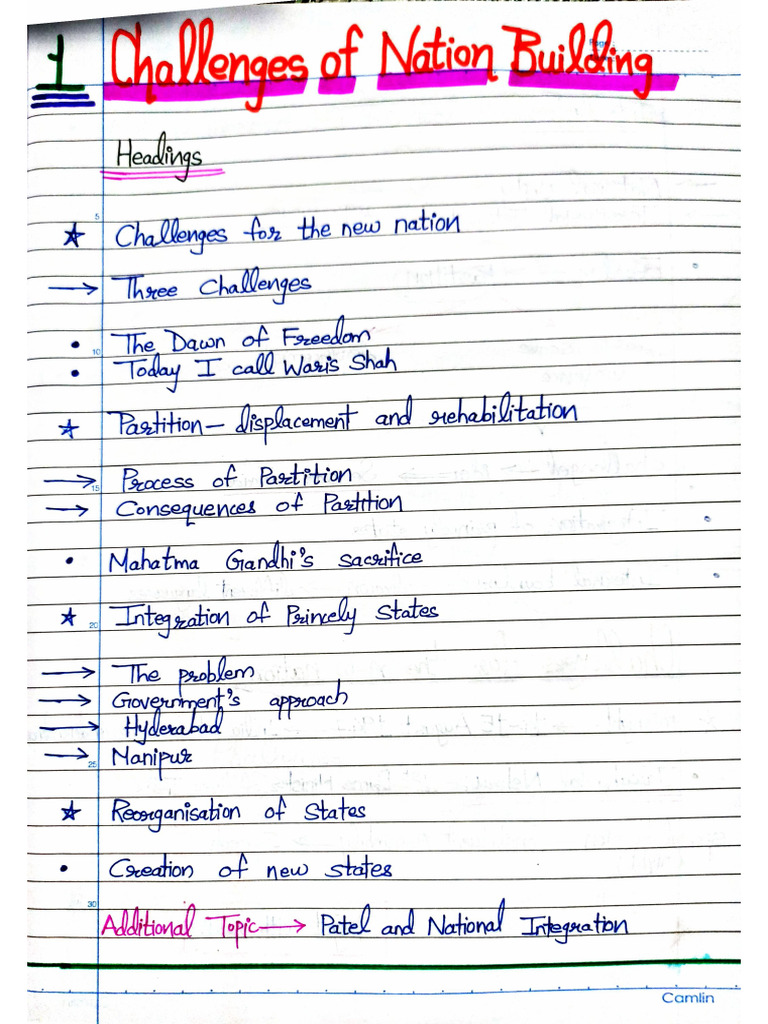 1 Challenges of Nation Building
Page
Headings
5
★ Challenges for the new nation
→ Three Challenges
• The Dawn of Freedom
10
• Today I call Waris Shah
★ Partition – displacement and rehabilitation
→ Process of Partition
15
→ Consequences of Partition
• Mahatma Gandhi's sacrifice
★ Integration of Princely States
20
→ The problem
→ Government's approach
→ Hyderabad
→ Manipur
25
★ Reorganisation of States
• Creation of new states
30
Additional Topic → Patel and National Integration
Camlin